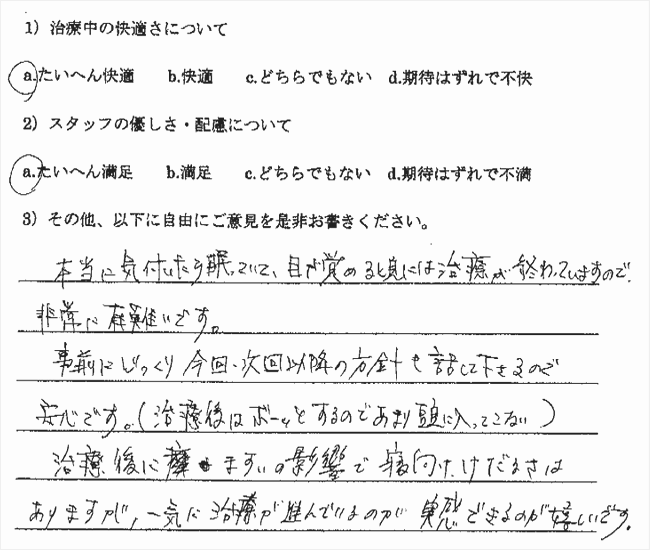 1) 治療中の快適さについて
a.たいへん快適 b.快適 c.どちらでもない d.期待はずれで不快
2) スタッフの優しさ・配慮について
a.たいへん満足 b.満足 c.どちらでもない d.期待はずれで不満
3) その他、以下に自由にご意見を是非お書きください。
本当に気付いたら眠っていて、目が覚める頃には治療が終わっていますので、
非常に有難いです。
事前にじっくり今回・次回以降の方針を話して下さるので
安心です。(治療後はボーッとするのであまり頭に入ってこない)
治療後に ますいの影響で寝付いただるさは
ありますが、一気に治療が進んでいるのが実感できるのが嬉しいです。